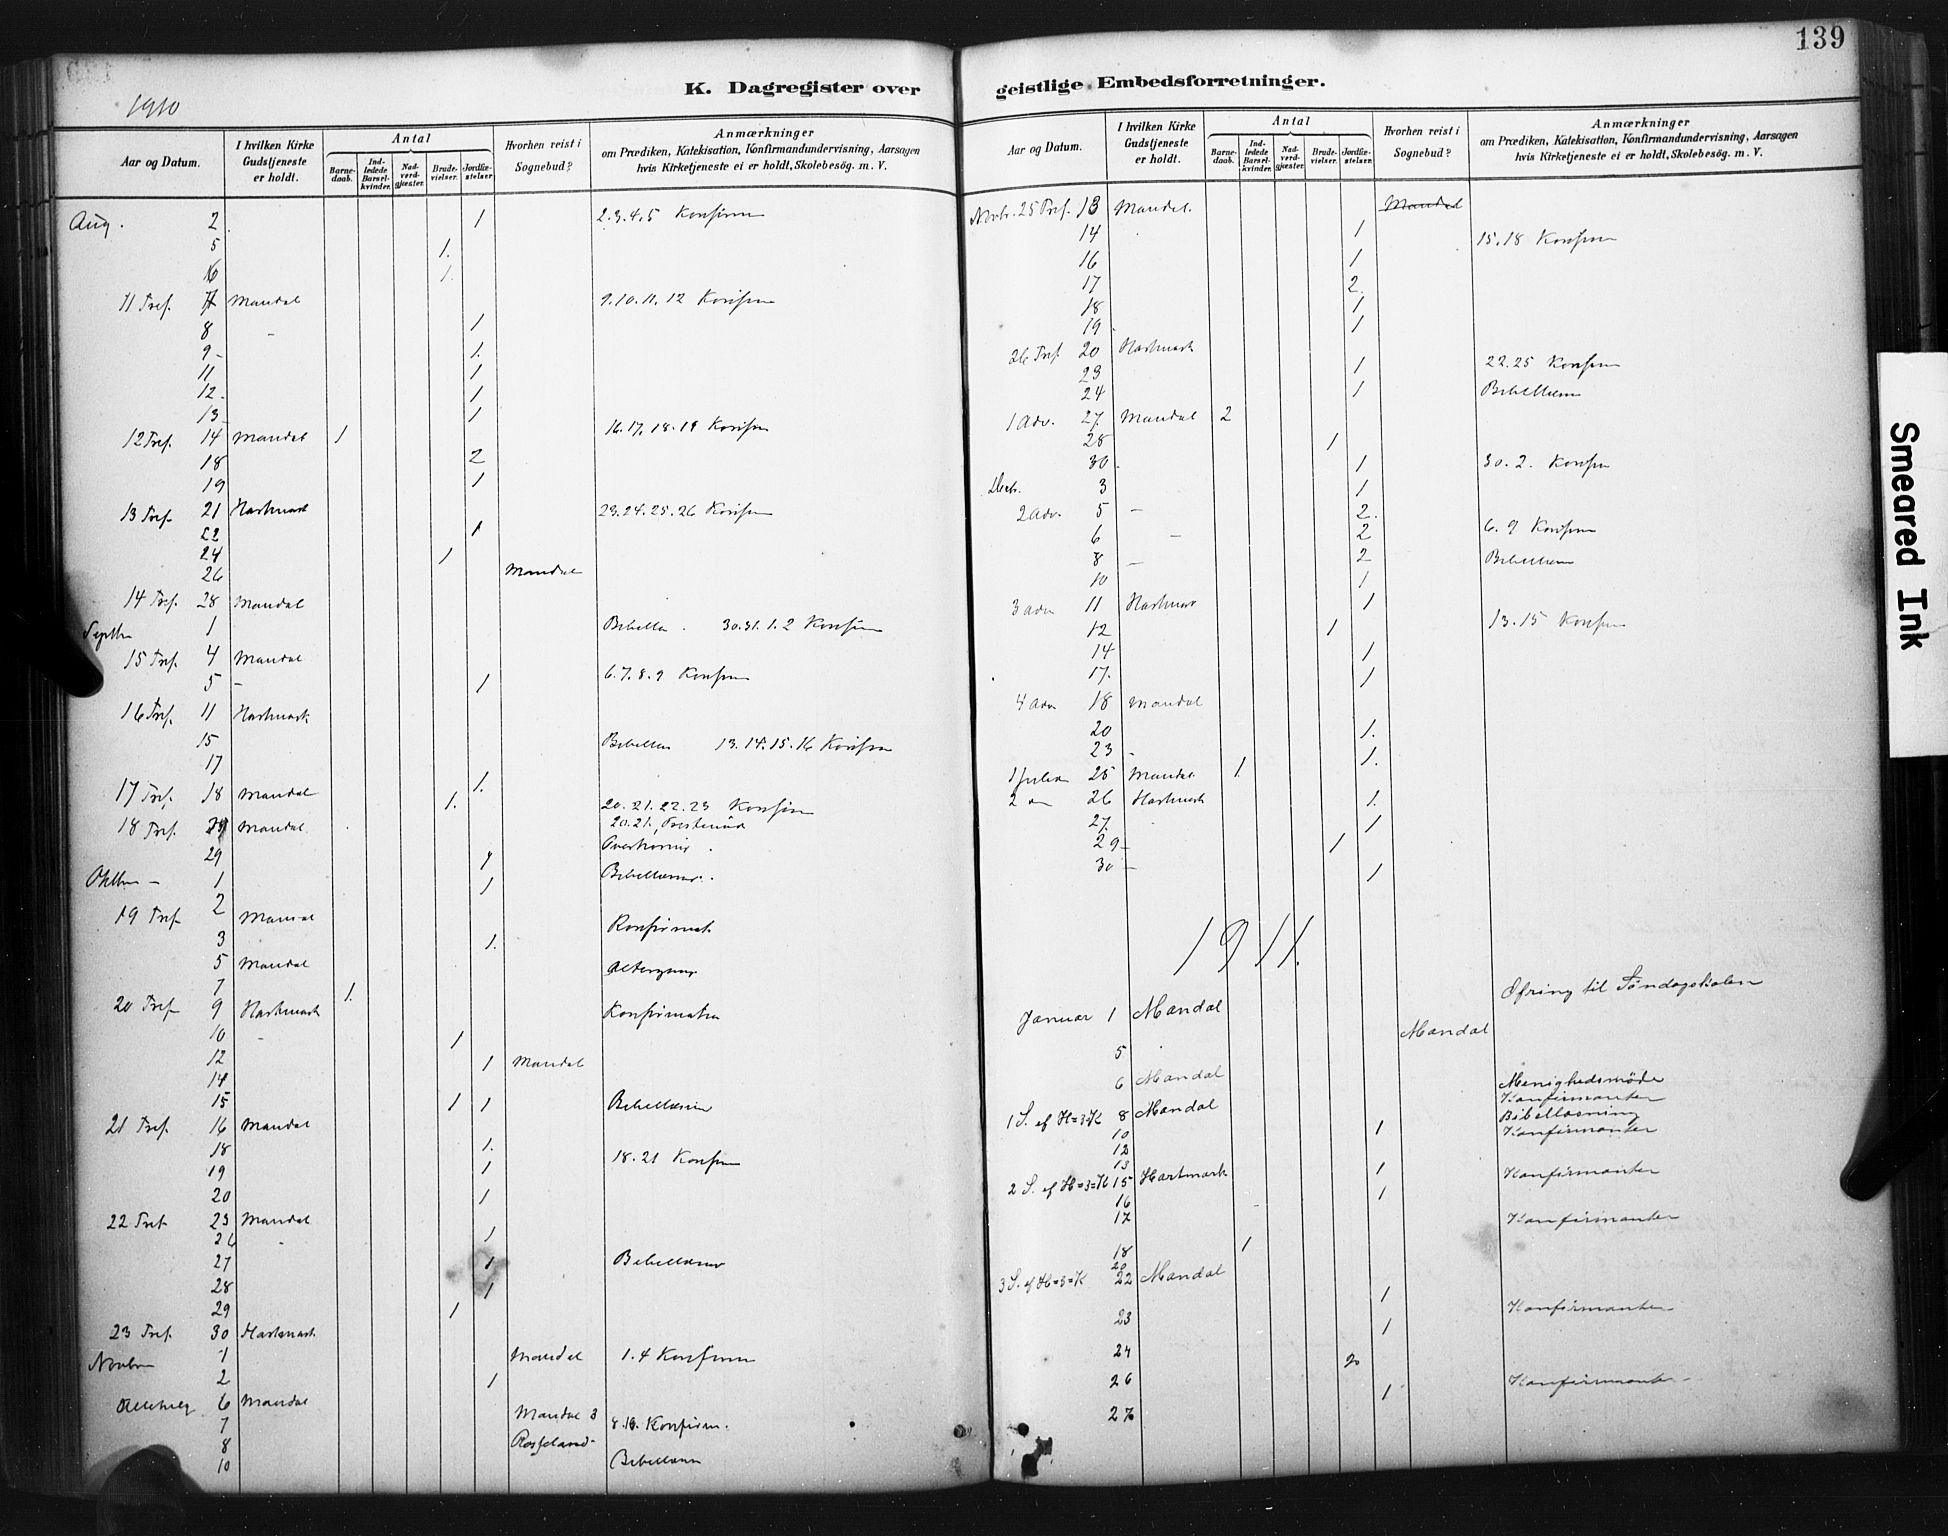 139
K. Dagregister over geistlige Embedsforretninger.
1910
Aar og Datum. | I hvilken Kirke Gudstjeneste er holdt. | Antal | Barnedaab. | Indledede Barselkvinder. | Nadverdgjester. | Brudevielser. | Jordfæstelser | Hvorhen reist i Sognebud? | Anmærkninger om Prædiken, Katekisation, Konfirmandundervisning, Aarsagen hvis Kirketjeneste ei er holdt, Skolebesög. m. V.
Aug. 2 1 2.3.4.5 Konfirm
5 1.
6 1.
11 Tref. 7 Mandal 9.10.11.12 Konfirm
8 - 1
9 - 1.
11 1
12. 1
13 1
12 Tref. 14 Mandal 1 16.17.18.19 Konfirm
18 2
19 1
13 Tref. 21 Hartmark 23.24.25.26 Konfirm
22 1
24 1
26 Mandal
14 Tref. 28 Mandal
Septbr 1 30.31.1.2 Konfirm
15 Tref. 4 Mandal
5 - 1 6.7.8.9 Konfirm
16 Tref. 11 Hartmark
15 13.14.15.16 Konfirm
17 1.
17 Tref. 18 Mandal 1. 20.21.22.23 Konfirm
18 Tref. Mandal 20.21.
29 1
Oktbr - 1 1 Bibellæsn.
2
19 Tref. Mandal Konfirmat
3 1.
5 Mandal Altergang
7 1.
20 Tref. 9 Hartmark Konfirmation
10 - 1
12 1 Mandal
14
15 1 1 Bibellæsn
21 Tref. 16 Mandal
18 1. 18.21 Konfirm
19 1
20 1
22 Tref 23 Mandal
26 - 1
27 1 Bibellæsn
28 1
29 1
23 Tref. 30 Hartmark
Novbr 1 Mandal 1.4 Konfirm
2 1
Allehelg 6 Mandal
7 Mandal 3 Konfirm.
8 Rosseland -
10 Bibellæsn
Aar og Datum. | I hvilken Kirke Gudstjeneste er holdt. | Antal | Barnedaab. | Indledede Barselkvinder. | Nadverdgjester. | Brudevielser. | Jordfæstelser | Hvorhen reist i Sognebud? | Anmærkninger om Prædiken, Katekisation, Konfirmandundervisning, Aarsagen hvis Kirketjeneste ei er holdt, Skolebesög. m. V.
Novbr. 25 Tref. 13 Mandal. Mandal
14 1 15.18 Konfirm
16 1
17 2.
18 1
19 1
26 Tref 20 Hartmark
23 1 22.25 Konfirm
24 1 Bibellæsn
1 Adv. 27. Mandal 2
28 1
30. 1 30.2. Konfirm
Decbr. 3 1
2 Adv. 5 - 2.
6 - 2 6.9 Konfirm
8 - 2 Bibellæsn
10 1
3 Adv 11 Hartmark 1
12 1 13.15 Konfirm
14 1
17. 1
4 Adv 18 Mandal
20 1.
23 - 1.
1 Juledag 25 Mandal 1.
2 " 26 Hartmark 1.
27. 1
29 - 1
30 - 1
1911.
Ofring til Söndagskolen
Januar 1 Mandal
5 Mandal
6 Mandal Menighedsmöde
Konfirmanter
1 S. ef H=3=K 8 Mandal Bibellæsning
10 1 Konfirmanter
12
13 1 Konfirmanter
2 S. ef H=3=K 15 Hartmark
16 1
17 Konfirmanter
18 1
20
3 S. ef H=3=K 22 Mandal 1
23 1 Konfirmanter
24 2
26 1 Konfirmanter
27
Smeared Ink